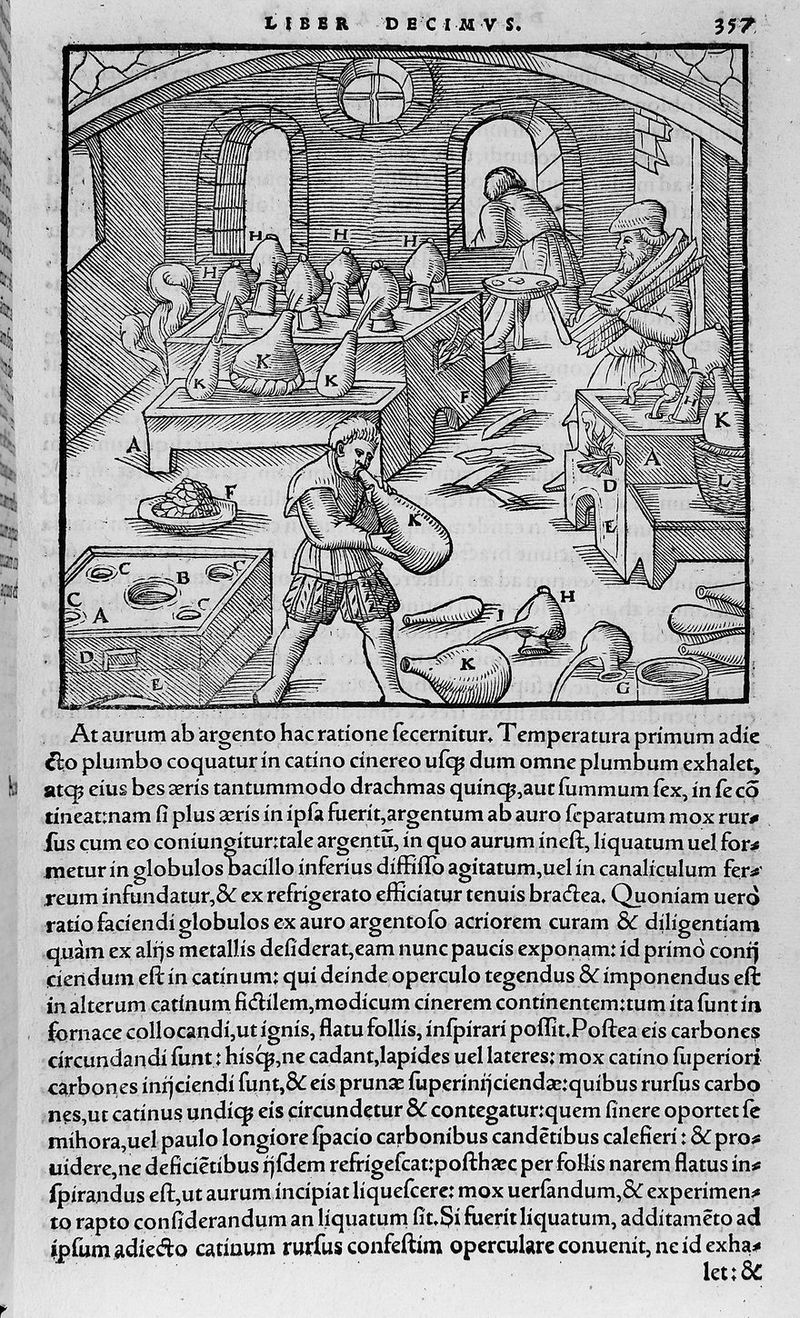 LIBER DECIMVS. 357
H H H H
K K K
A F
F K
K H
A L
D
E
C C B
C C
A
D
E
I H
K
G
At aurum ab argento hac ratione ſecernitur. Temperatura primum adie
cto plumbo coquatur in catino cinereo uſq; dum omne plumbum exhalet,
atq; eius bes æris tantummodo drachmas quinq;, aut ſummum ſex, in ſe cō
tineat: nam ſi plus æris in ipſa fuerit, argentum ab auro ſeparatum mox rur-
ſus cum eo coniungitur: tale argentū, in quo aurum ineſt, liquatum uel for-
metur in globulos bacillo inferius diffiſſo agitatum, uel in canaliculum fer-
reum infundatur, & ex refrigerato efficiatur tenuis bractea. Quoniam uerò
ratio faciendi globulos ex auro argentoſo acriorem curam & diligentiam
quàm ex alijs metallis deſiderat, eam nunc paucis exponam: id primò conij
ciendum eſt in catinum: qui deinde operculo tegendus & imponendus eſt
in alterum catinum fictilem, modicum cinerem continentem: tum ita ſunt in
fornace collocandi, ut ignis, flatu follis, inſpirari poſſit. Poſtea eis carbones
circundandi ſunt: hiſq́;, ne cadant, lapides uel lateres: mox catino ſuperiori
carbones inijciendi ſunt, & eis prunæ ſuperinijciendæ: quibus rurſus carbo
nes, ut catinus undiq; eis circundetur & contegatur: quem ſinere oportet ſe
mihora, uel paulo longiore ſpacio carbonibus candētibus calefieri: & pro-
uidere, ne deficiētibus ijſdem refrigeſcat: poſthæc per follis narem flatus in-
ſpirandus eſt, ut aurum incipiat liqueſcere: mox uerſandum, & experimen-
to rapto conſiderandum an liquatum ſit. Si fuerit liquatum, additamēto ad
ipſum adiecto catinum rurſus confeſtim operculare conuenit, ne id exha-
let: &